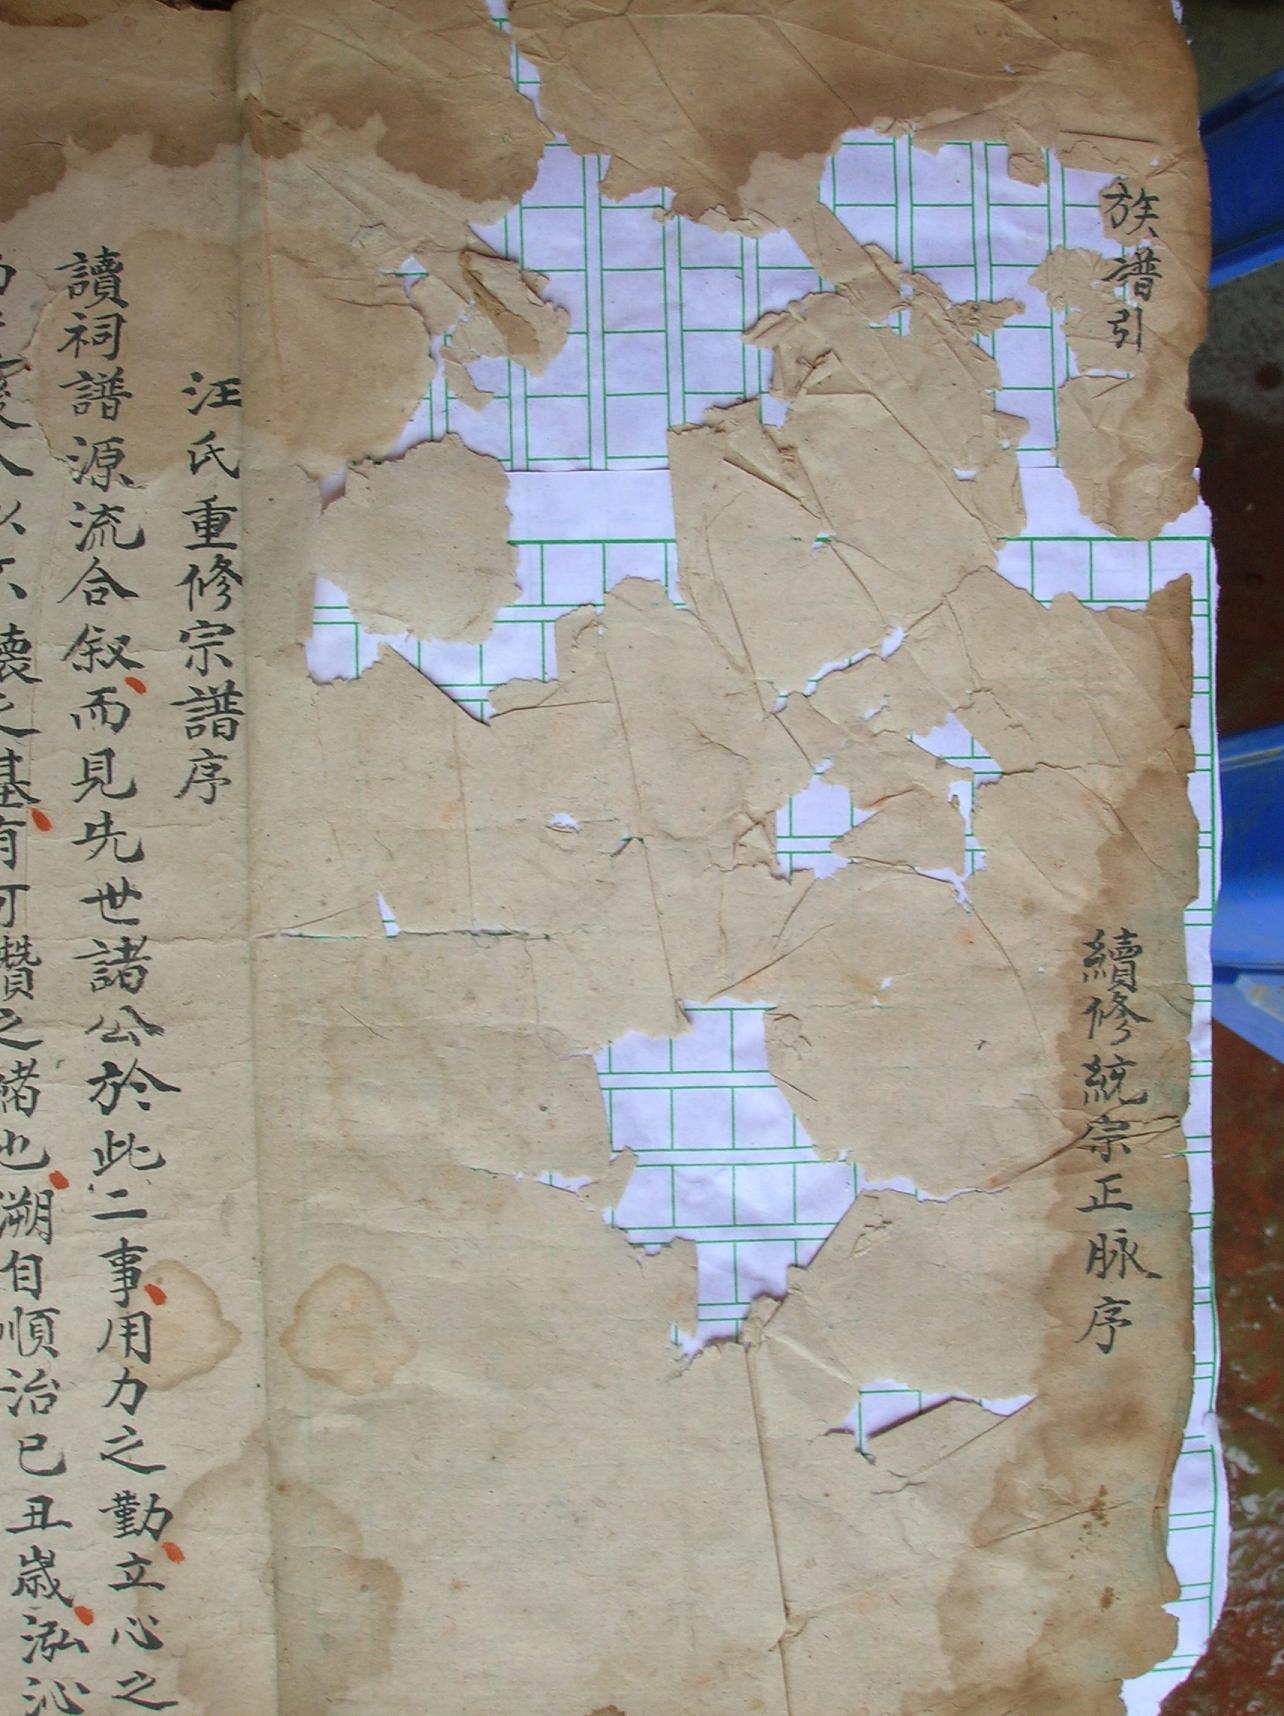 族譜引
續修統宗正脉序
汪氏重修宗譜序
讀祠譜源流合叙而見先世諸公於此二事用力之勤立心之
人以不壞之基有可贊之緒也溯自順治已丑歲泓沁